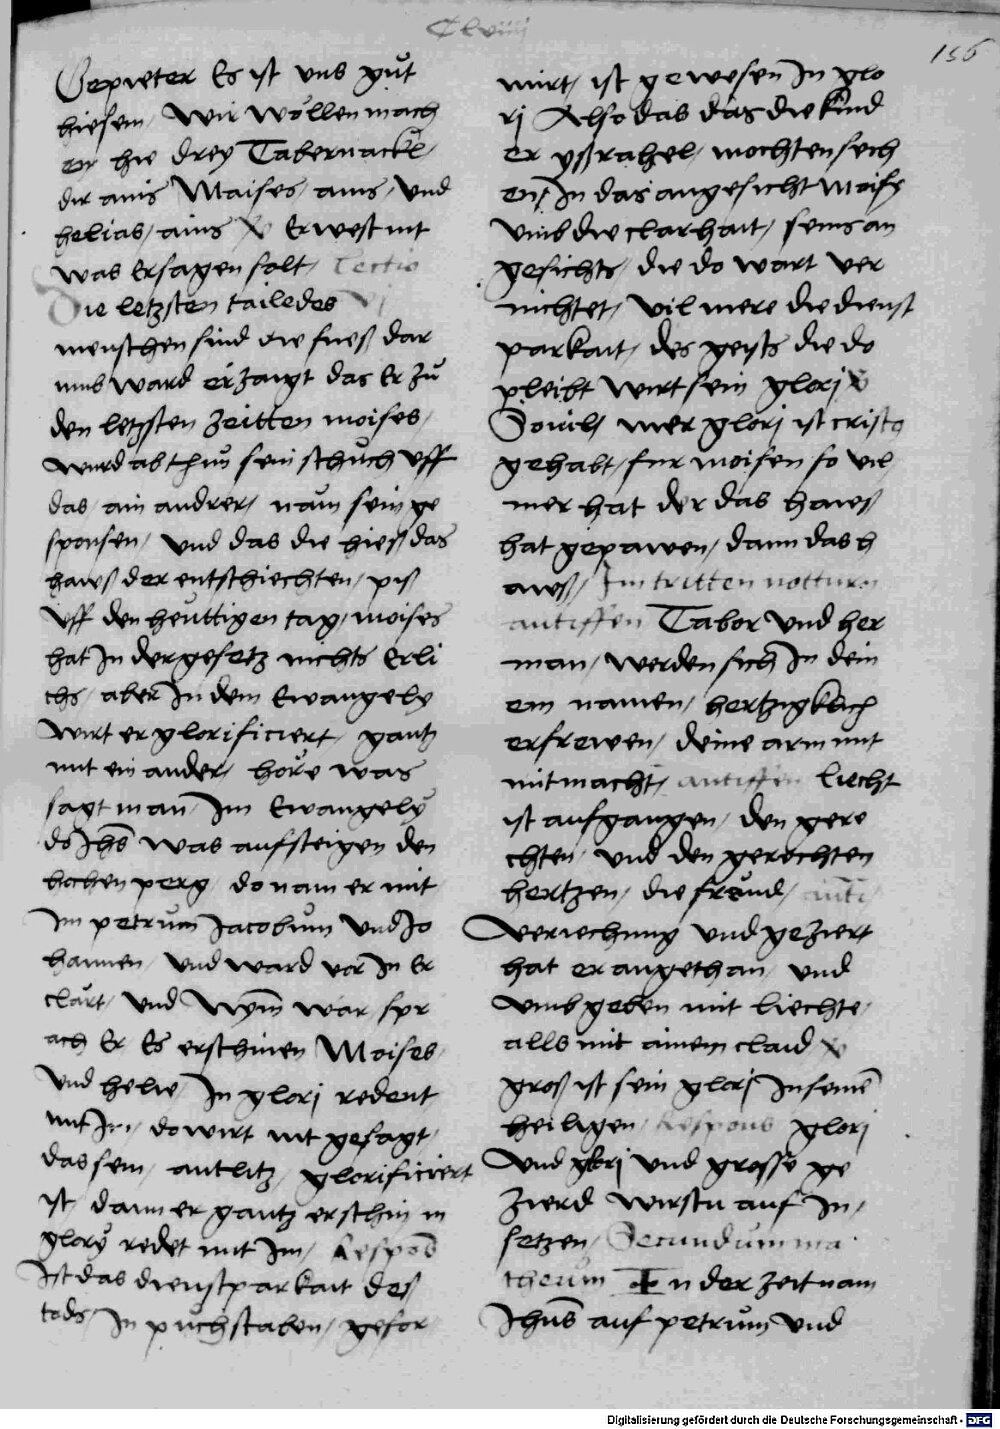 Clviiij
156
Gepieter Es ist uns gůt
hiesein, Wir wöllen mach
en hie drey Tabernackl,
dir ains Maises, ains, Und
helias, ains Er west nit
was Er sagen solt, Lectio
Die letzsten taile des vj
menschen sind die fuess dar
umb ward erzaigt das Er zů
den letzsten Zeitten moises,
Wurd abthun sein schůch Uff
das, ain andrer, nam sein ge
sponsen, Und das die hiess das
hawss der entschiechten, piss
Uff den heuttigen tag, moises
hat In der gesetz nichts Erli
chs, aber In dem Ewangely
Wirt er glorificiert, gantz
mit ein ander, höre was
sagt man, Im Ewangely
do Jhs was aufsteigen den
hochen perg, do nam er mit
Im petrum Jacobum Und Jo
hannen, Und ward vor In Er
clärt, Und Wym war, spr
ach Er Es erschinen Moises,
Und helie, In glorj redent
mit Im, do wirt nit gesagt,
das sein, antlitz, glorificiert
ist, dann er gantz erschin in
glorÿ redet mit Im, Respons
Ist das dienstparkait des
tods, In půchstaben, gefor
mirt, ist gewesen In glo
rj Also das das die kind
er ysrahel, mochten sech
en, In das angesicht Moisy
Umb die clarhait, seins an
gesichts, die do wart ver
nichtet, vil mere die dienst
parkait, des geysts die do
pleibt wirt sein glorj
Souil, mer glorj ist cristo
gehabt, fur moisen so vil
mer hat der das hawss
hat gepawen, dann das h
awss, Im tritten notturn
antiffen Tabor Und her
man, werden sich In dein
em namen, hertzigklich
erfrewen, deine arm mit
mit macht, antiffen liecht
ist aufgangen, den gere
chten, und den gerechten
hertzen, die freud, anti,
Veriechung Und geziert
hat er angethan, Und
Umbgeben mit liechte,
alls mit ainem claid
gross ist sein glorj In seinē
heiligen, Respons glorj
Und glorj Und grosse ge
zierd wirstu auf In,
setzen, Secundum ma
theum In der zeit nam
Jhus auf petrum Und
Digitalisierung gefördert durch die Deutsche Forschungsgemeinschaft - DFG